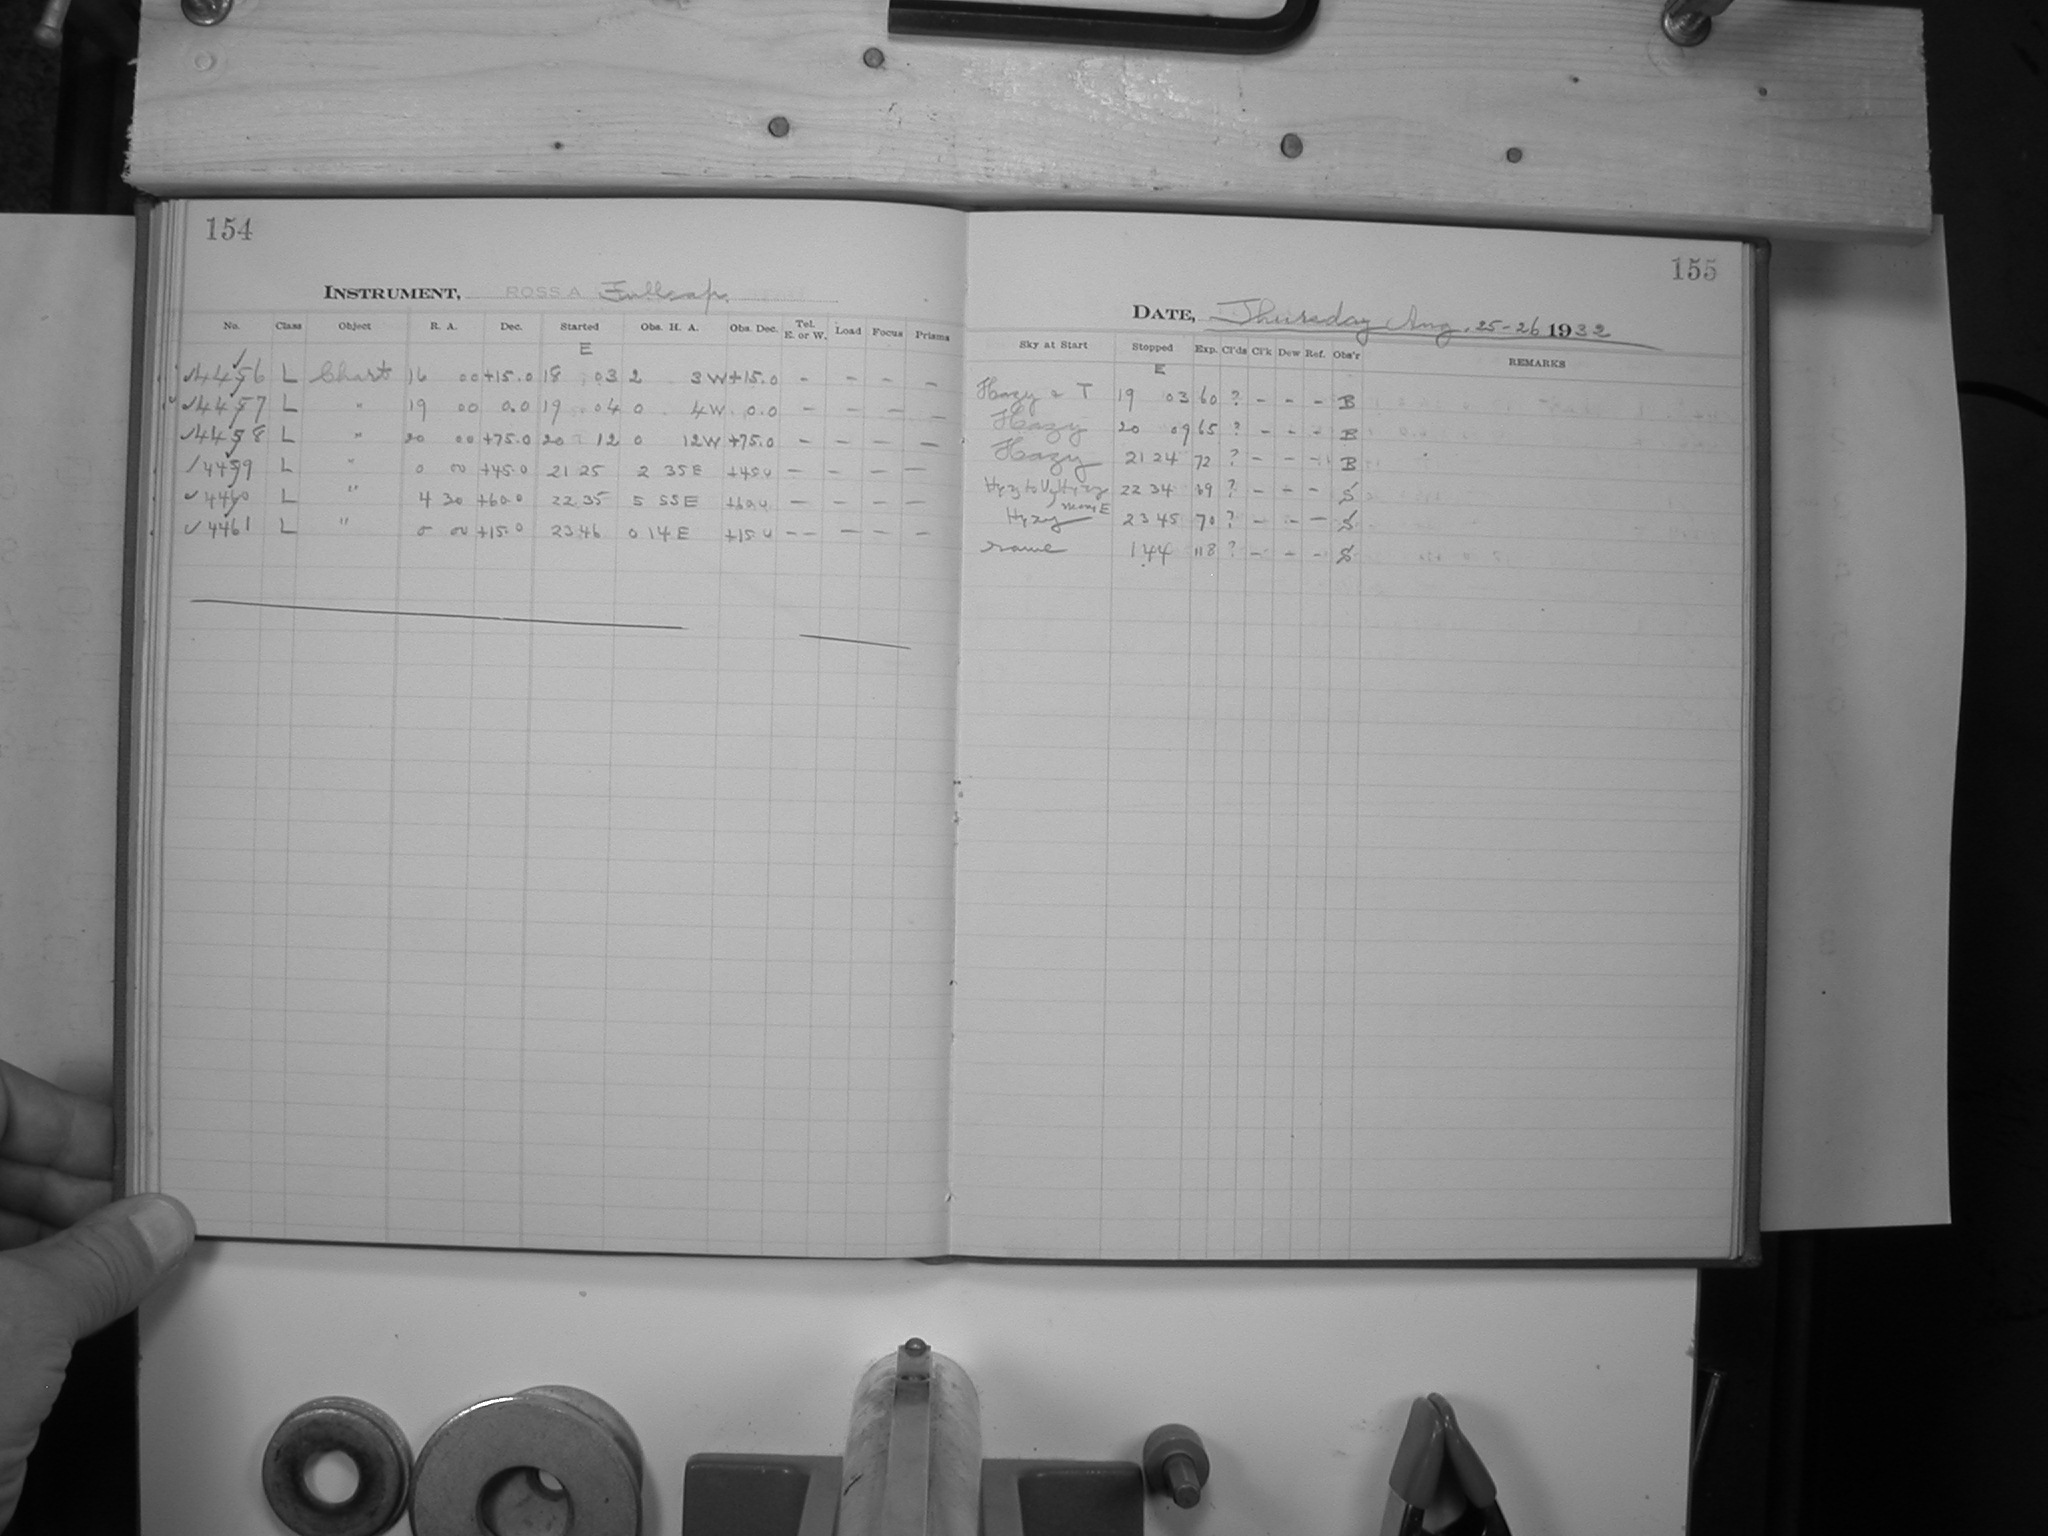 154
INSTRUMENT, ROSS A Fullcap.
No. Class Object R. A. Dec. Started Obs. H. A. Obs. Dec. Tel. E. or W. Load Focus Prisms
E
✓4456 L Chart 16 00 +15.0 18 03 2 3W +15.0 - - - -
✓4457 L " 19 00 0.0 19 04 0 4W 0.0 - - - -
✓4458 L " 20 00 +75.0 20 12 0 12W +75.0 - - - -
✓4459 L " 0 00 +45.0 21 25 2 35E +45.0 - - - -
✓4460 L " 4 30 +60.0 22 35 5 55E +60.0 - - - -
✓4461 L " 0 00 +15.0 23 46 0 14E +15.0 - - - - -
155
DATE, Thursday Aug. 25-26 1932
Sky at Start Stopped Exp. Cl'ds Cl'k Dew Ref. Obs'r REMARKS
E
Hazy & T 19 03 60 ? - - - B
Hazy 20 09 65 ? - - - B
Hazy 21 24 72 ? - - - B
Hzy to V Hzy 22 34 69 ? - - - S
Moon E
Hzy 23 45 70 ? - - - S
same 1 44 118 ? - - - S